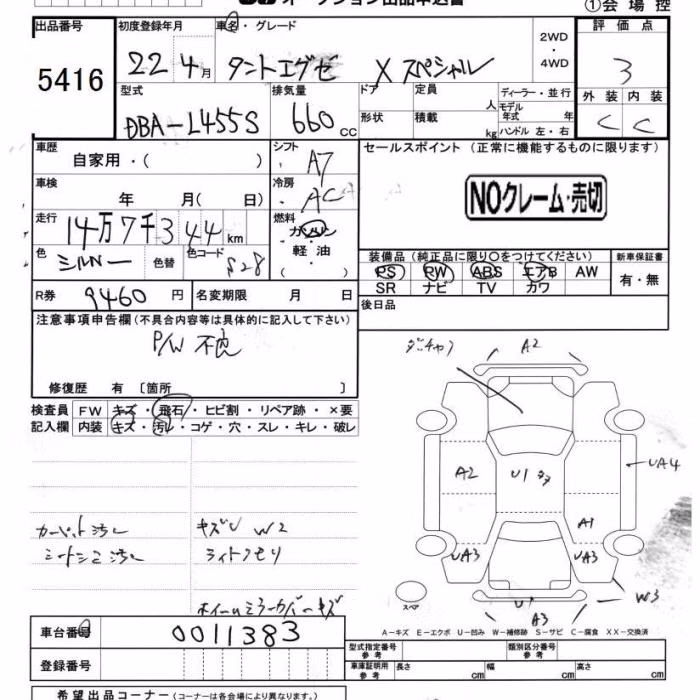 オークション出品申込書
①会場控
出品番号 初度登録年月 車名・グレード 2WD・4WD 評価点
5416 22年4月 タントエグゼ Xスペシャル 3
型式 排気量 ドア 定員 人 ディーラー・並行 外装 内装
DBA-L455S 660cc 形状 積載 kg モデル年式 年 ハンドル 左・右 C C
車歴 シフト セールスポイント (正常に機能するものに限ります)
自家用・( ) A7
車検 冷房 NOクレーム・売切
年 月( 日) AC
走行 燃料
14万7千344km ガソリン
色 色替 色コード 軽油 装備品 (純正品に限り○をつけてください) 新車保証書
シルバー S28 ・( ) PS PW ABS エアB AW 有・無
SR ナビ TV カワ
R券 9460円 名変期限 月 日 後日品
注意事項申告欄 (不具合内容等は具体的に記入して下さい)
P/W 不良
修復歴 有 〔箇所 〕
検査員 FW キズ・飛石・ヒビ割・リペア跡・×要
記入欄 内装 キズ・汚レ・コゲ・穴・スレ・キレ・破レ
A2
A2 U1 UA4
A1
UA3 UA3
カーペット汚レ キズU W2
シートシミ汚レ ライトクモリ
W3
スペア U1 A3
ホイールミラーカバーキズ
A-キズ E-エクボ U-凹み W-補修跡 S-サビ C-腐食 XX-交換済
車台番号 0011383
登録番号
型式指定番号 参考 類別区分番号 参考
車庫証明用 参考 長さ cm 幅 cm 高さ cm
希望出品コーナー (コーナーは各会場により異なります。)